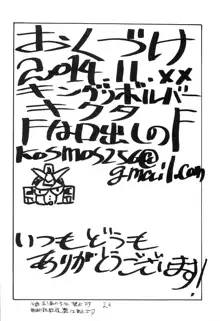 おくづけ
2014.11.xx
キングリボルバー
キクタ
Fは口出しのF
kosmos256@
gmail.com
いつもどうも
ありがとうございます!
24